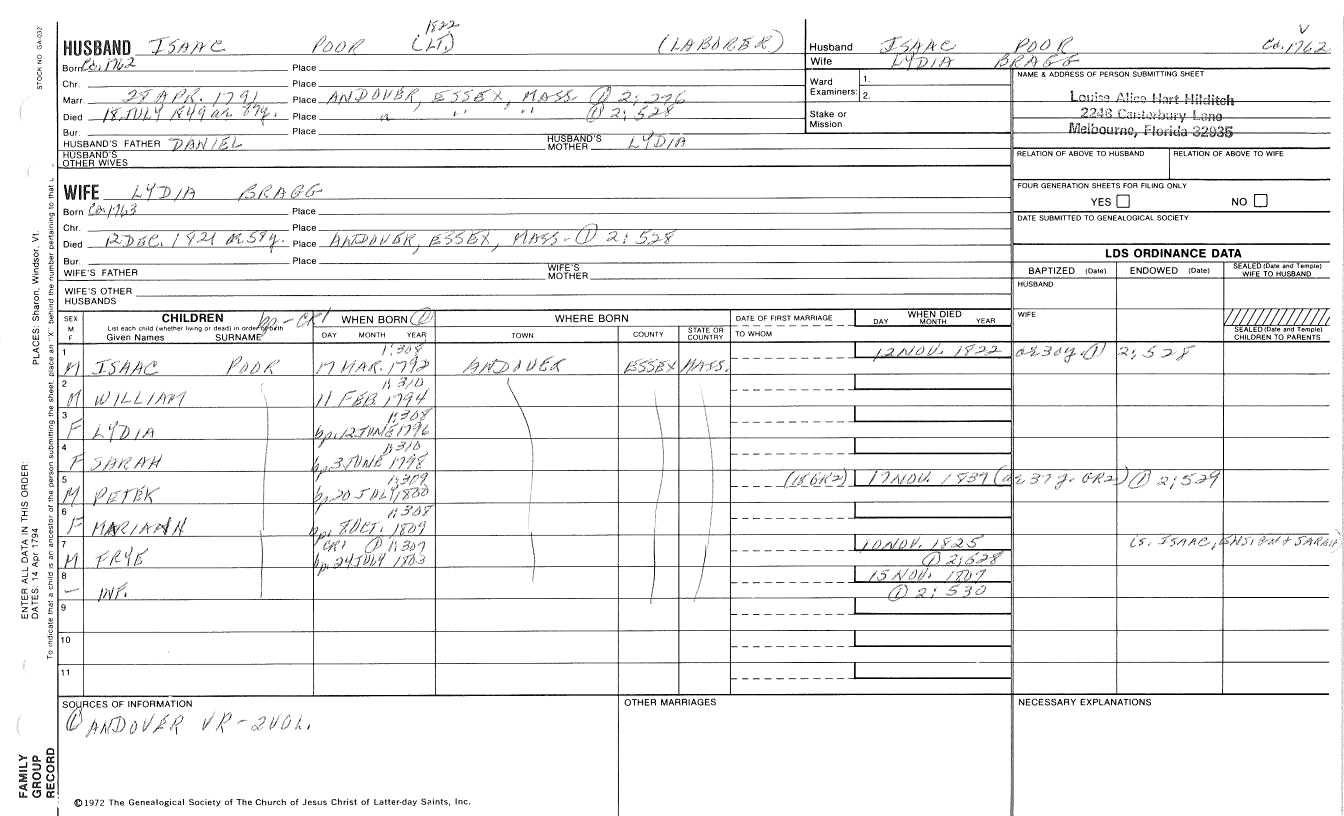 STOCK NO GA-032
1822
HUSBAND ISAAC POOR (LT.) (LABORER)
Born Ca. 1762 Place
Chr. Place
Marr. 28 APR. 1791 Place ANDOVER, ESSEX, MASS. ① 2:276
Died 18 JULY 1849 ae. 87y. Place " " " ① 2:528
Bur. Place
HUSBAND'S FATHER DANIEL HUSBAND'S MOTHER LYDIA
HUSBAND'S OTHER WIVES
WIFE LYDIA BRAGG
Born Ca. 1763 Place
Chr. Place
Died 12 DEC. 1821 ae. 58y. Place ANDOVER, ESSEX, MASS. - ① 2:528
Bur. Place
WIFE'S FATHER WIFE'S MOTHER
WIFE'S OTHER HUSBANDS
Husband ISAAC POOR Ca. 1762
Wife LYDIA BRAGG
Ward Examiners: 1.
2.
Stake or Mission
NAME & ADDRESS OF PERSON SUBMITTING SHEET
Louise Alice Hart Hilditch
2248 Canterbury Lane
Melbourne, Florida 32935
RELATION OF ABOVE TO HUSBAND RELATION OF ABOVE TO WIFE
FOUR GENERATION SHEETS FOR FILING ONLY
YES NO
DATE SUBMITTED TO GENEALOGICAL SOCIETY
LDS ORDINANCE DATA
BAPTIZED (Date) ENDOWED (Date) SEALED (Date and Temple) WIFE TO HUSBAND
HUSBAND
WIFE
SEALED (Date and Temple) CHILDREN TO PARENTS
SEX M F
CHILDREN bp-CR1 WHEN BORN ① WHERE BORN DATE OF FIRST MARRIAGE WHEN DIED
List each child (whether living or dead) in order of birth
Given Names SURNAME DAY MONTH YEAR TOWN COUNTY STATE OR COUNTRY TO WHOM DAY MONTH YEAR
1 1:308 12 NOV. 1822 ae 30y. ① 2:528
M ISAAC POOR 17 MAR. 1792 ANDOVER ESSEX MASS.
2 1:310
M WILLIAM 11 FEB. 1794
3 1:308
F LYDIA bp. 12 JUNE 1796
4 1:310
F SARAH bp. 3 JUNE 1798
5 1:309 (18 GR2) 17 NOV. 1837 (ae 37y. GR2) ① 2:529
M PETER bp. 20 JULY 1800
6 1:308
F MARIANN bp. 8 OCT. 1809
7 CR1 ① 1:307 10 NOV. 1825 (s. ISAAC, ENSIGN & SARAH)
M FRYE bp. 24 JULY 1803 ① 2:528
8 15 NOV. 1807
- INF. ① 2:530
9
10
11
SOURCES OF INFORMATION OTHER MARRIAGES NECESSARY EXPLANATIONS
① ANDOVER VR-2VOL.
©1972 The Genealogical Society of The Church of Jesus Christ of Latter-day Saints, Inc.
PLACES: Sharon, Windsor, Vt.
ENTER ALL DATA IN THIS ORDER:
DATES: 14 Apr 1794
To indicate that a child is an ancestor of the person submitting the sheet, place an "X" behind the number pertaining to that
FAMILY GROUP RECORD